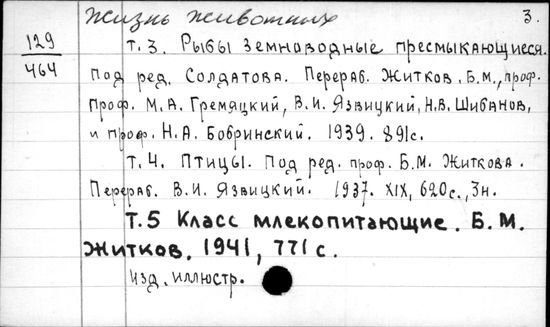 Жизнь животных 3.
129 т. 3. Рыбы земноводные пресмыкающиеся.
464
Под ред. Солдатова. Перераб. Житков. Б.М., проф.
проф. М.А. Гремяцкий, В.И. Язвицкий, Н.В. Шибанов,
и проф. Н.А. Бобринский. 1939. 891с.
Т.4. Птицы. Под ред. проф. Б.М. Житкова.
Перераб. В.И. Язвицкий. 1937. XIX, 620с., 3н.
Т.5 Класс млекопитающие. Б.М.
Житков. 1941, 771 с.
изд. иллюстр.